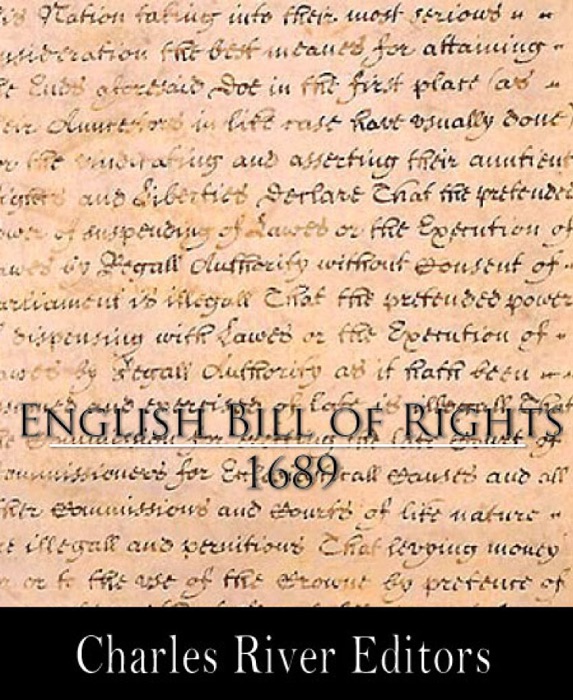 is Nation taking into their most serious
nsideration the best meanes for attaining
e Ends aforesaid Doe in the first place (as
eir Auncestors in like case have usually done)
or the vindicating and asserting their auntient
ights and Liberties Declare That the pretended
ower of suspending of Lawes or the Execution of
awes by Regall Authority without Consent of
arliament is illegall That the pretended power
dispensing with Lawes or the Execution of
awes by Regall Authority as it hath been
and exercised of late is illegall That
ENGLISH BILL OF RIGHTS
1689
the Commission for erecting the late Court of
ommissioners for Ecclesiasticall Causes and all
ther Commissions and Courts of like nature
re illegall and pernitious That levying money
or or to the use of the Crowne by pretence of
Charles River Editors